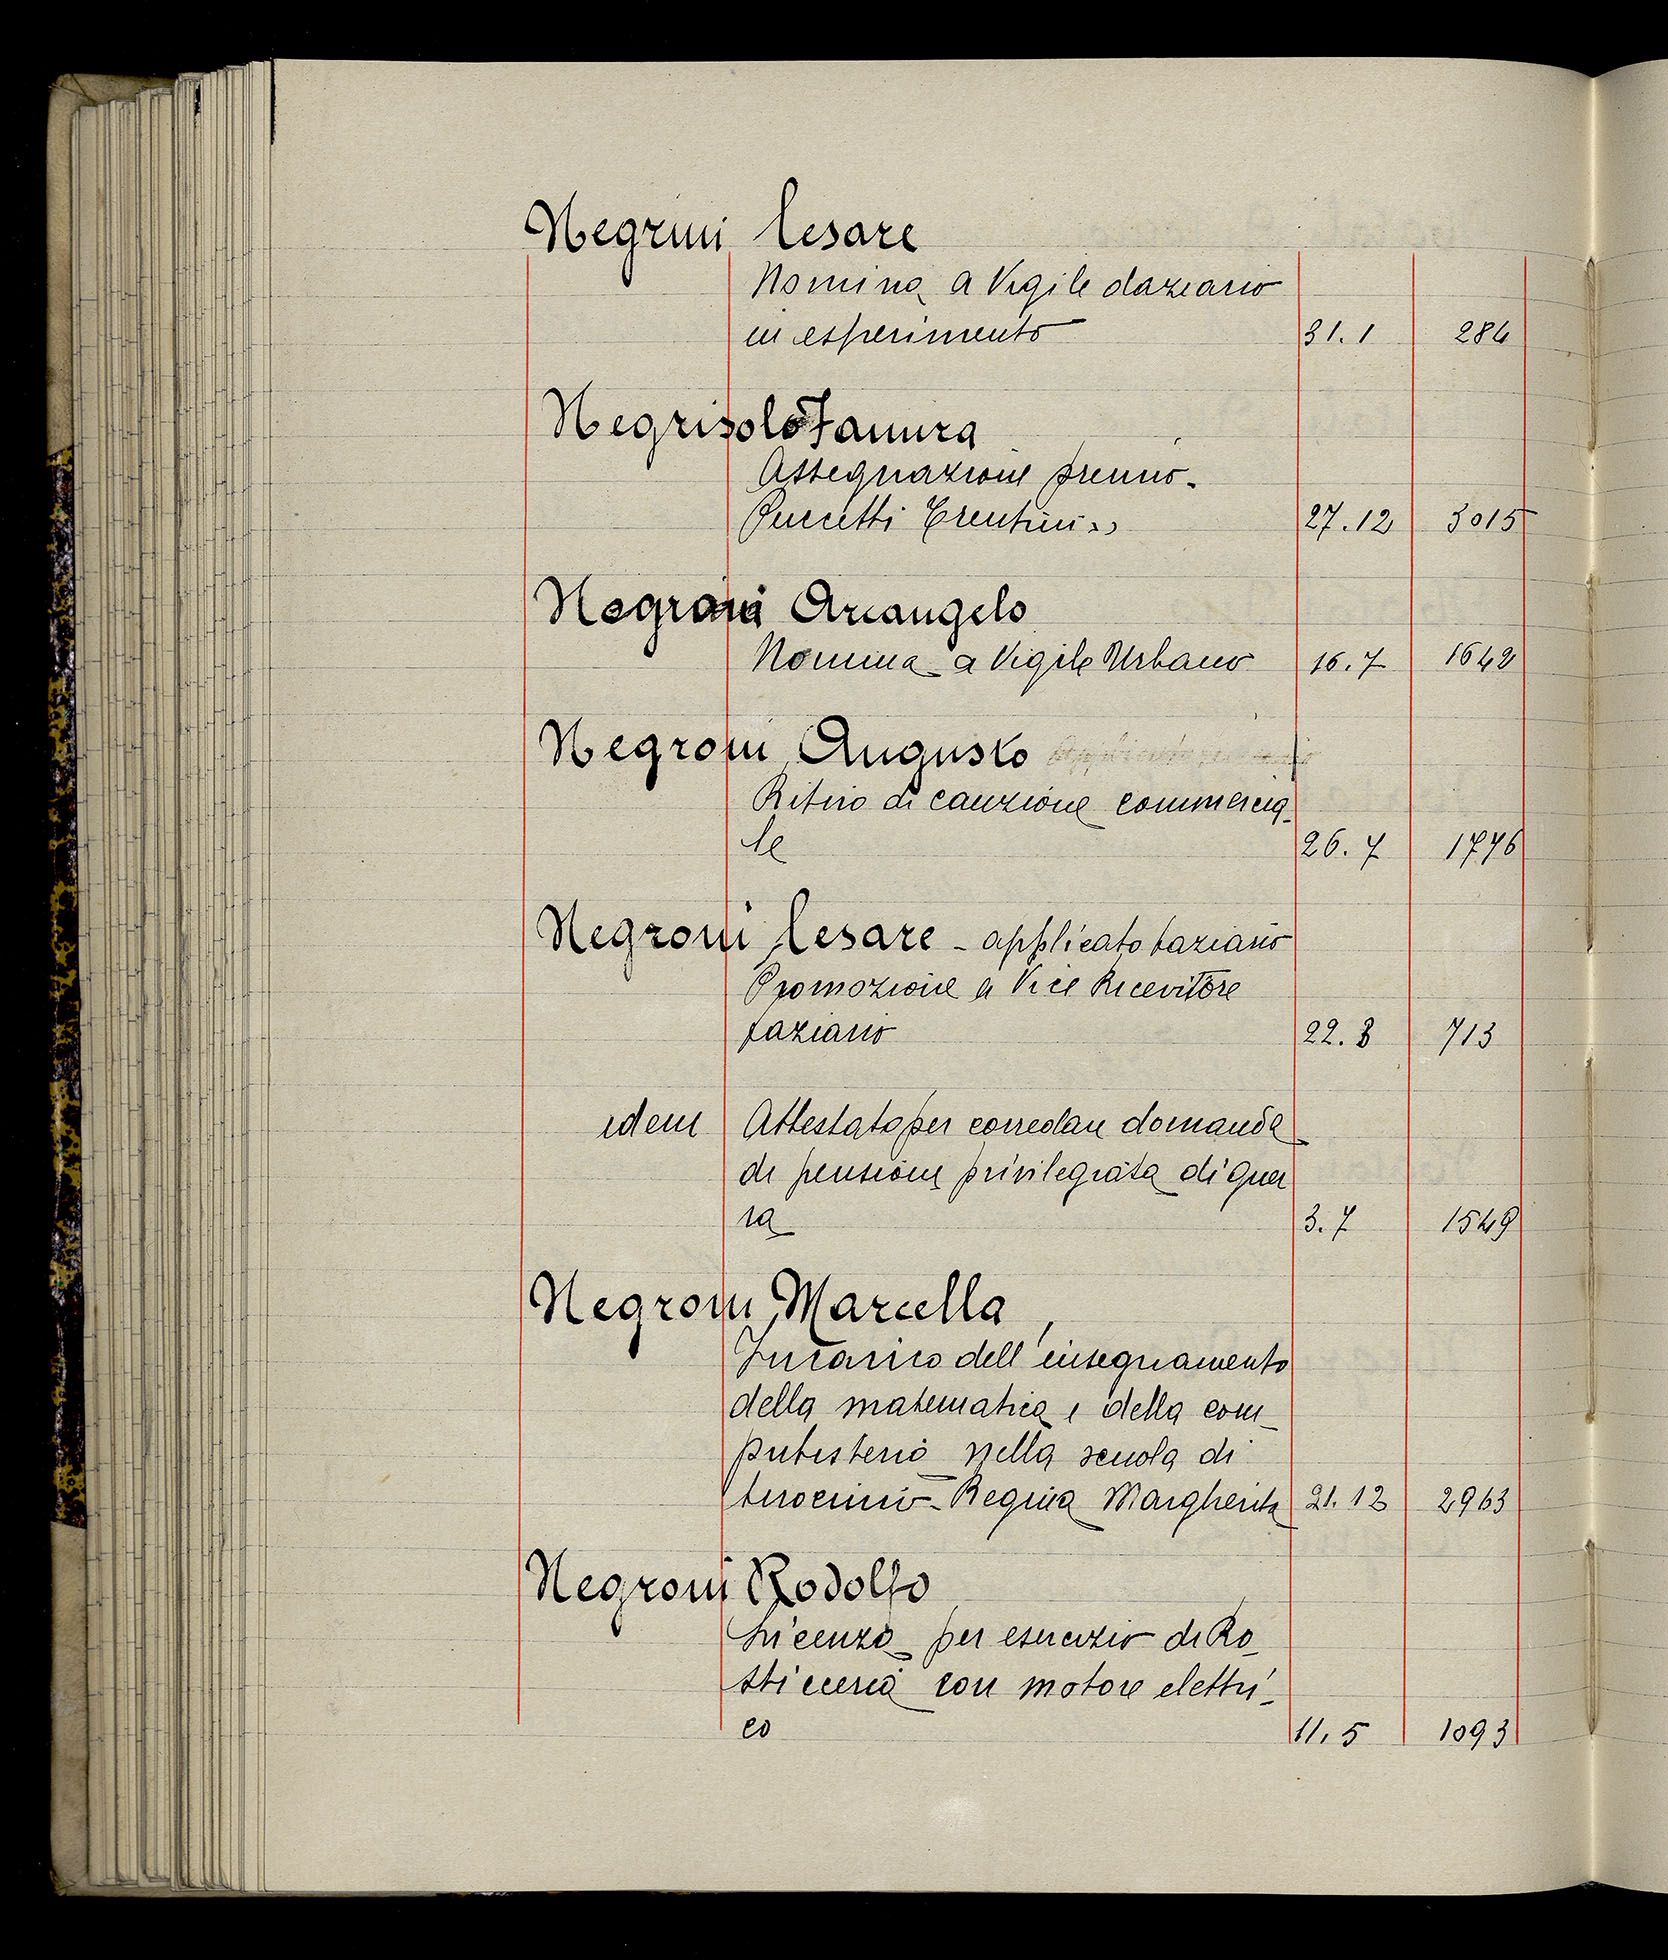 Negrini Cesare
Nomina a Vigile daziario
in esperimento 31.1 284
Negrisolo
Assegnazione premio -
Puccetti Trentini » 27.12 3015
Negroni Arcangelo
Nomina a Vigile Urbano 16.7 1642
Negroni Augusto
Ritiro di cauzione commercia-
le 26.7 1776
Negroni Cesare - applicato daziario
Promozione a Vice Ricevitore
daziario 22.3 713
idem Attestato per corredare domanda
di pensione privilegiata di guer
ra 3.7 1549
Negroni Marcella
Incarico dell'insegnamento
della matematica e della com-
putisteria nella scuola di
tirocinio - Regina Margherita 21.12 2963
Negroni Rodolfo
Licenza per esercizio di Ro-
sticceria con motore elettri-
co 11.5 1093